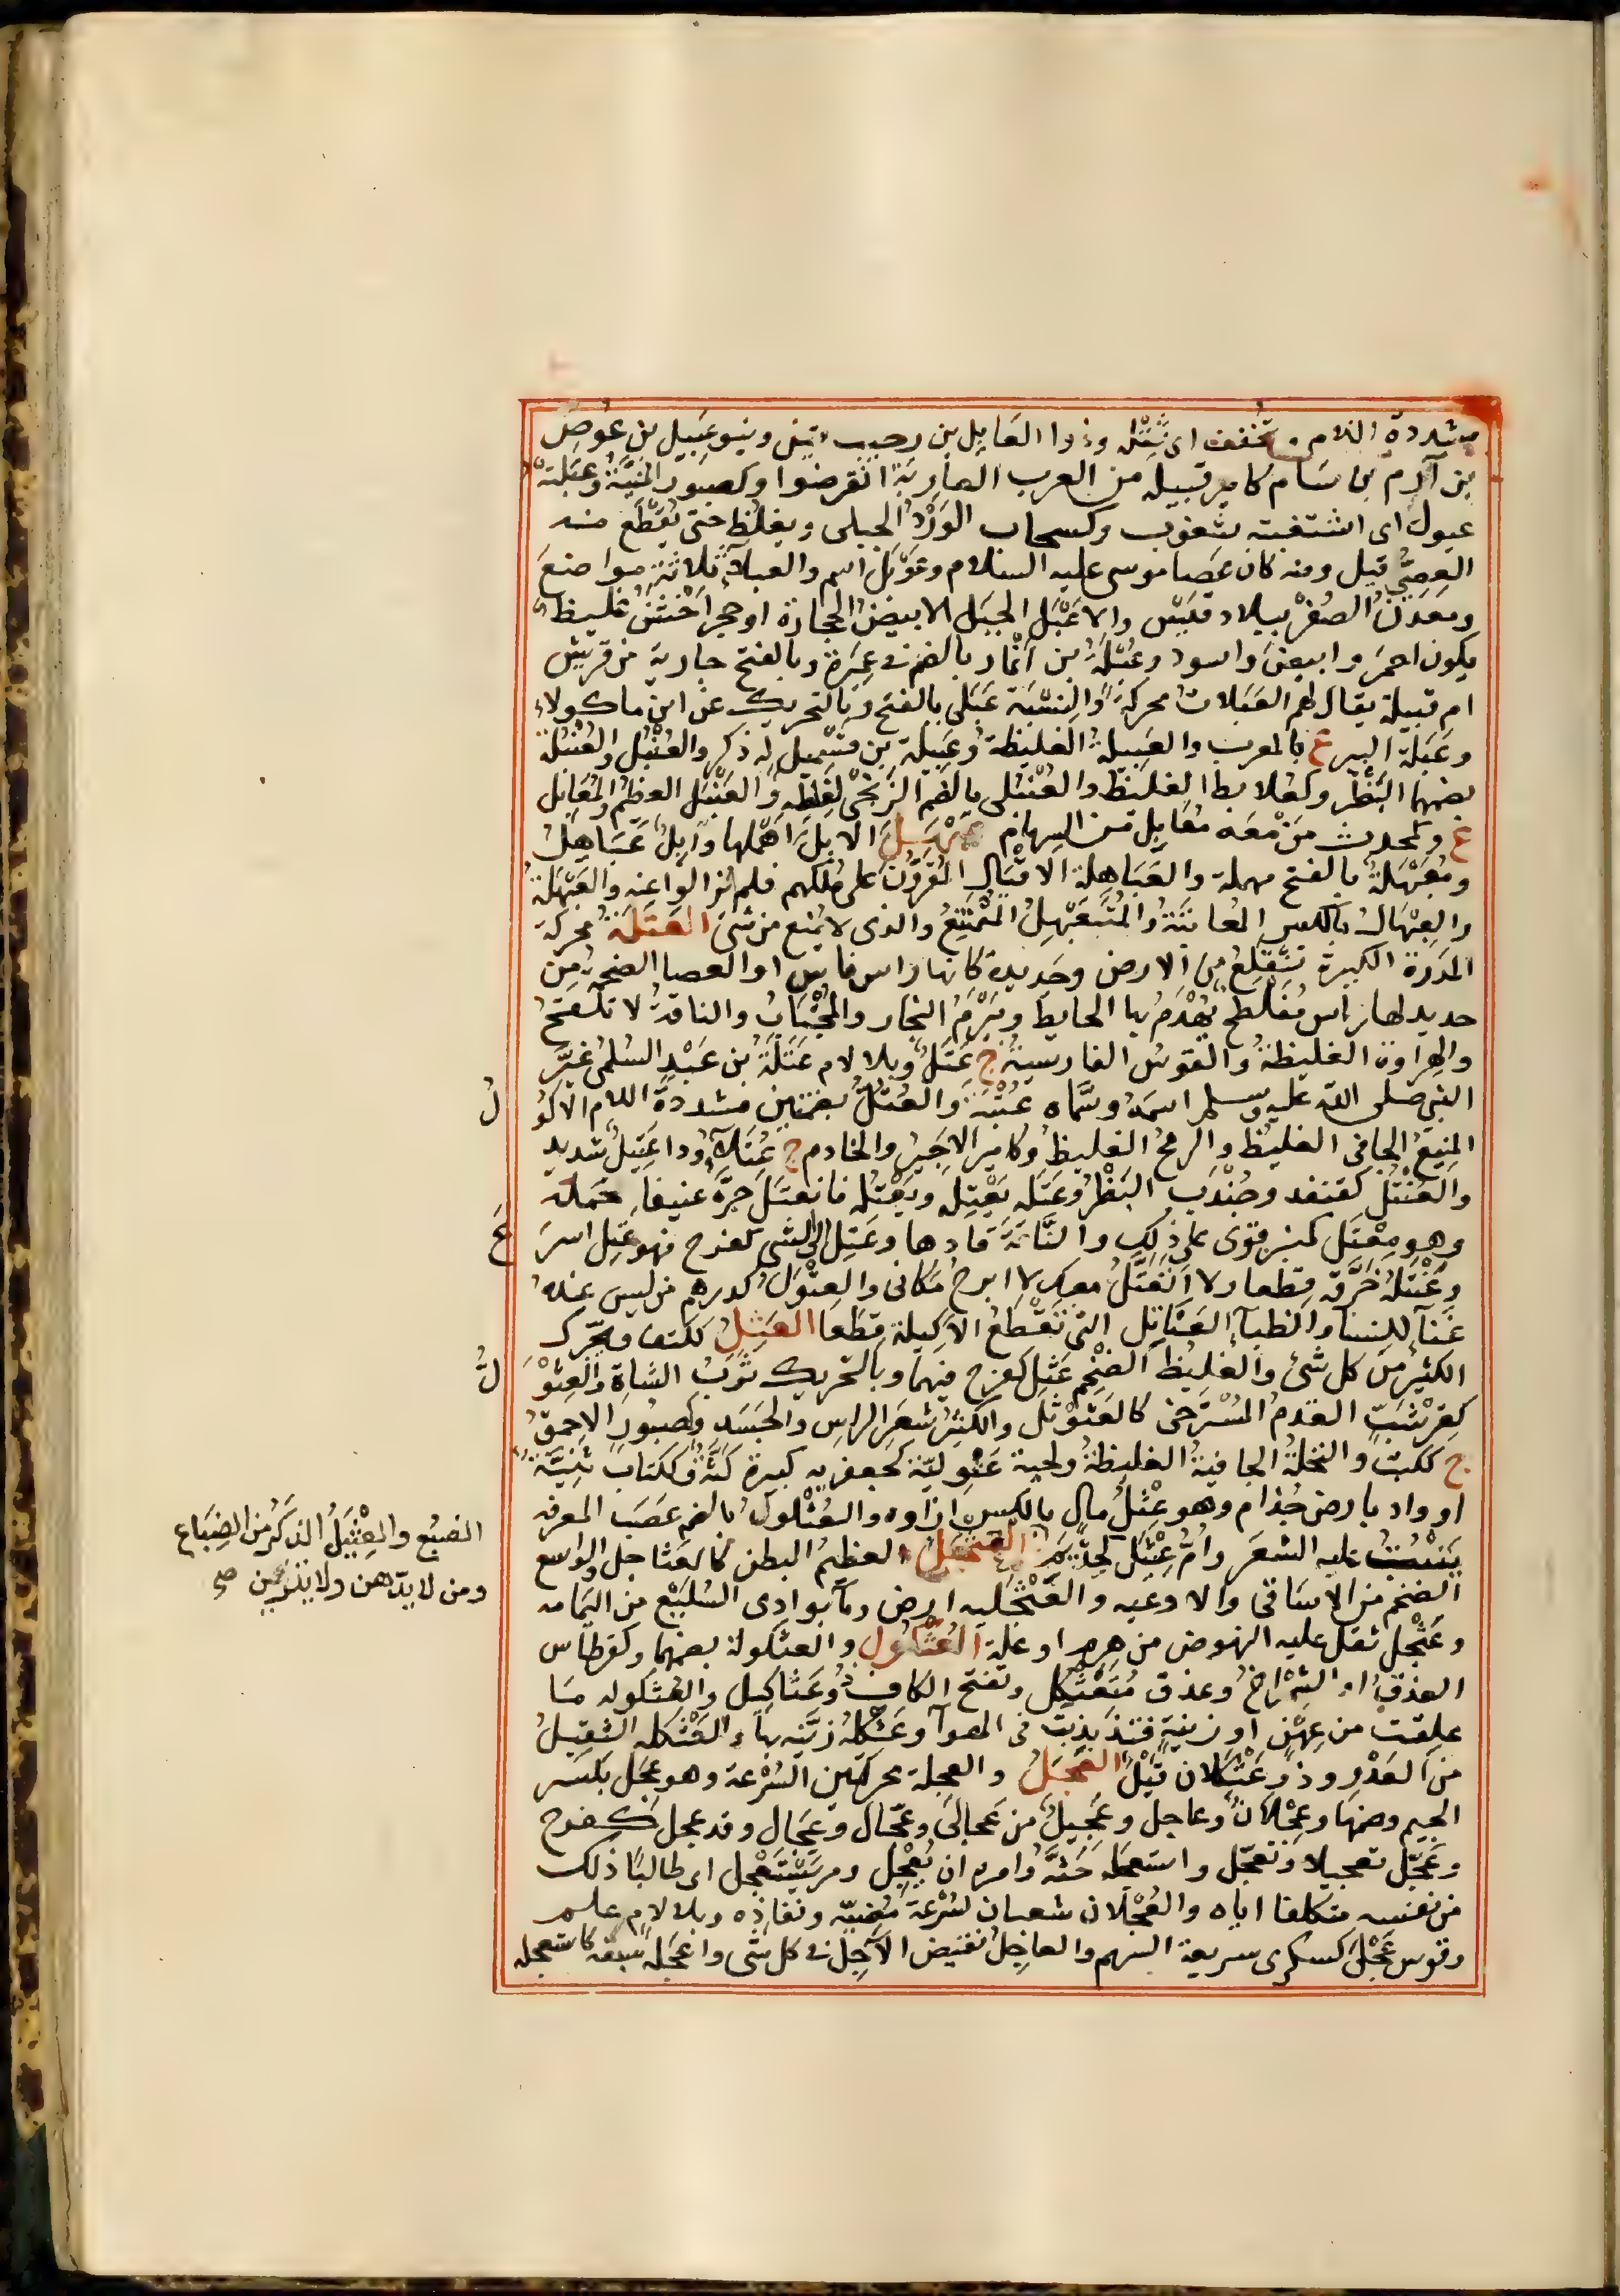 مشددة اللام وتخفف اى ثقله وذوا العابل بن رحيب قيل وبنو عبيل بن عوص
بن آرم بن سام كامير قبيلة من العرب العاربة انقرضوا وكصبور المنية وعبلته
عبول اى اشتعبته شعوب وكسحاب الورد الجبلى ويغلظ حتى تقطع منه
العصى قيل ومنه كان عصا موسى عليه السلام وعوبل اسم والعبلاء ثلاثة مواضع
ومعدن الصفر ببلاد قيس والاعبل الجبل الابيض الحجارة او حجر اخشن غليظ
يكون احمر وابيض واسود وعبلة بن انمار بالضم فى عنزة وبالفتح جارية من قريش
ام قبيلة يقال لهم العبلات محركة والنسبة عبلى بالفتح وبالتحريك عن ابن ماكولا
وعبلة البير ع بالمغرب والعبيلة الغليظة وعبيلة بن قسميل له ذكر والعنبل والعنبلة
بضمهما البظر وكعلابط الغليظ والعنبلى بالضم الزنجى لغلظه والعنبل العظيم والمعابل
ع وكمحدث من معه معابل من السهام عبهل الابل اهملها وابل عباهل
ومعبهلة بالفتح مهملة والعباهلة الاقيال المقرون على ملكهم فلم يزالوا عنه والعبهلة
والعبهال بالكسر المعاتنة والمتعبهل الممتنع والذى لا يمنع من شئ العتلة محركة
المدرة الكبيرة تنقلع من الارض وحديدة كانها راس فاس او العصا الضخمة من
حديد لها راس مفلطح يهدم بها الحايط وبيرم النجار والمجتاب والناقة لا تلقح
والهراوة الغليظة والقوس الفارسية ج عتل وبلا لام عتلة بن عبد السلمى غير
النبى صلى الله عليه وسلم اسمه وسماه عتبة والعتل بضمتين مشددة اللام الاكول
المنيع الجافى الغليظ والرمح الغليظ وكامير الاجير والخادم ج عتلاء وداء عتيل شديد
والعنتل كقنفد وجندب البظر وعتله يعتله ويعتله فانعتل جره عنيفا فحمله
وهو معتل كمنبر قوى على ذلك والناقة قادها وعتل الى الشى كفرح فهو عتل اسرع
وعنتله خرقه قطعا ولا اتعتل معك لا ابرح مكانى والعتول كدرهم من ليس عنده
غناء للنساء والظباء العتابل التى تقطع الاكيلة قطعا العثل ككتف ويحرك
الكثير من كل شئ والغليظ الضخم عثل كفرح فيهما وبالتحريك ثرب الشاة والعثول
كقرشب الفدم المسترخى كالعثوثل والكثير شعر الراس والجسد وكصبور الاحمق
ج ككتب والنخلة الجافية الغليظة ولحية عثولية كجعفرية كبيرة كثة وككتاب ثنية
او واد بارض جذام وهو عثل مال بالكسر ازاؤه والعثلول بالضم عصب المعرفة
ينبت عليه الشعر وام عثيل كحذيم العثجل العظيم البطن كالعثاجل والواسع
الضخم من الاساقى والاوعيه والعثجليه ارض وماء بوادى السليع من اليمامه
وعثجل ثقل عليه النهوض من هرم او علة العثكول والعثكولة بضمهما وكقرطاس
العذق او الشمراخ وعذق متعثكل وتفتح الكاف ذو عثاكيل والعثكوله ما
علقت من عهن او زينة فتذبذبت فى الهواء وعثكله زينه بها والعثكله الثقيل
من العدو وذو عثكلان قيل العجل والعجلة محركتين السرعة وهو عجل بكسر
الجيم وضمها وعجلان وعاجل وعجيل من عجالى وعجال وعجال وقد عجل كفرح
وعجل تعجيلا وتعجل واستعجله حثه وامره ان يعجل ومر يستعجل اى طالبا ذلك
من نفسه متكلفا اياه والعجلان شعبان لسرعة مضيه ونفاذه وبلا لام علم
وقوس عجلى كسكرى سريعة السهم والعاجل نقيض الآجل فى كل شى واعجله سبقه كاستعجله
الضبع والعثيل الذكر من الضباع
ومن لا يدهن ولا يتزين صح